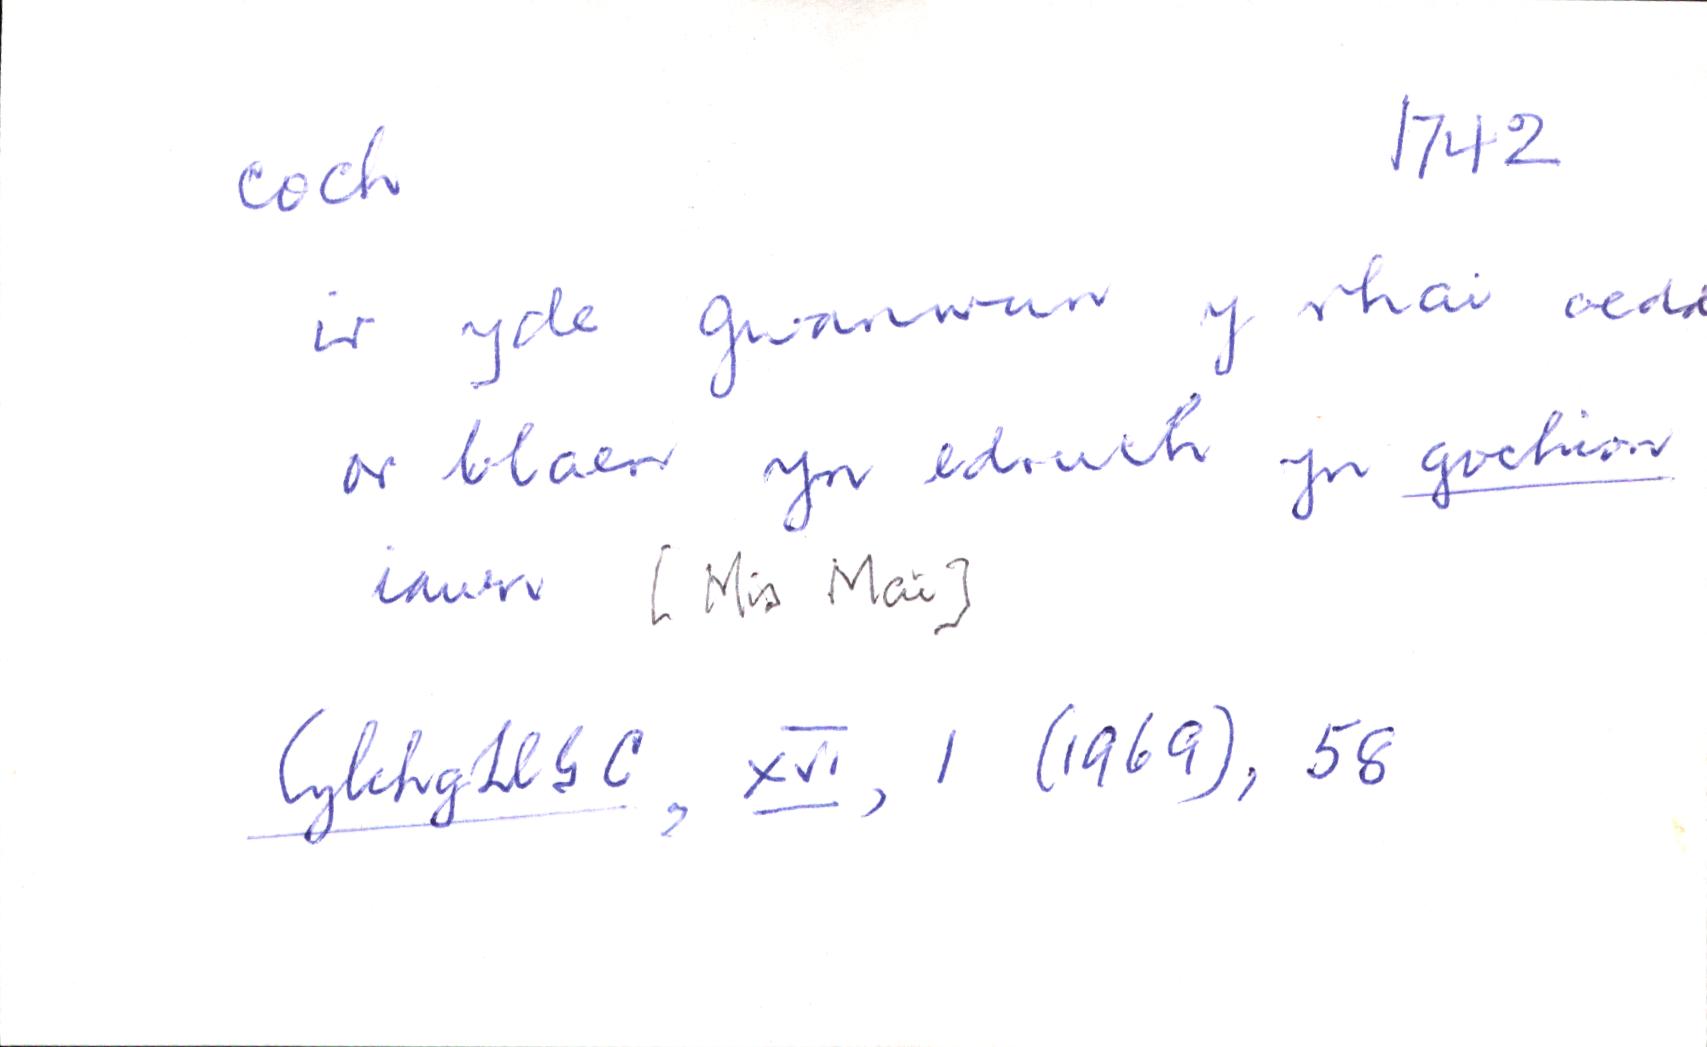 coch 1742
ir yde gwanwun y rhai oedd
or blaen yn edruch yn gochion
iawn [Mis Mai]
CylchgLlGC, XVI, 1 (1969), 58